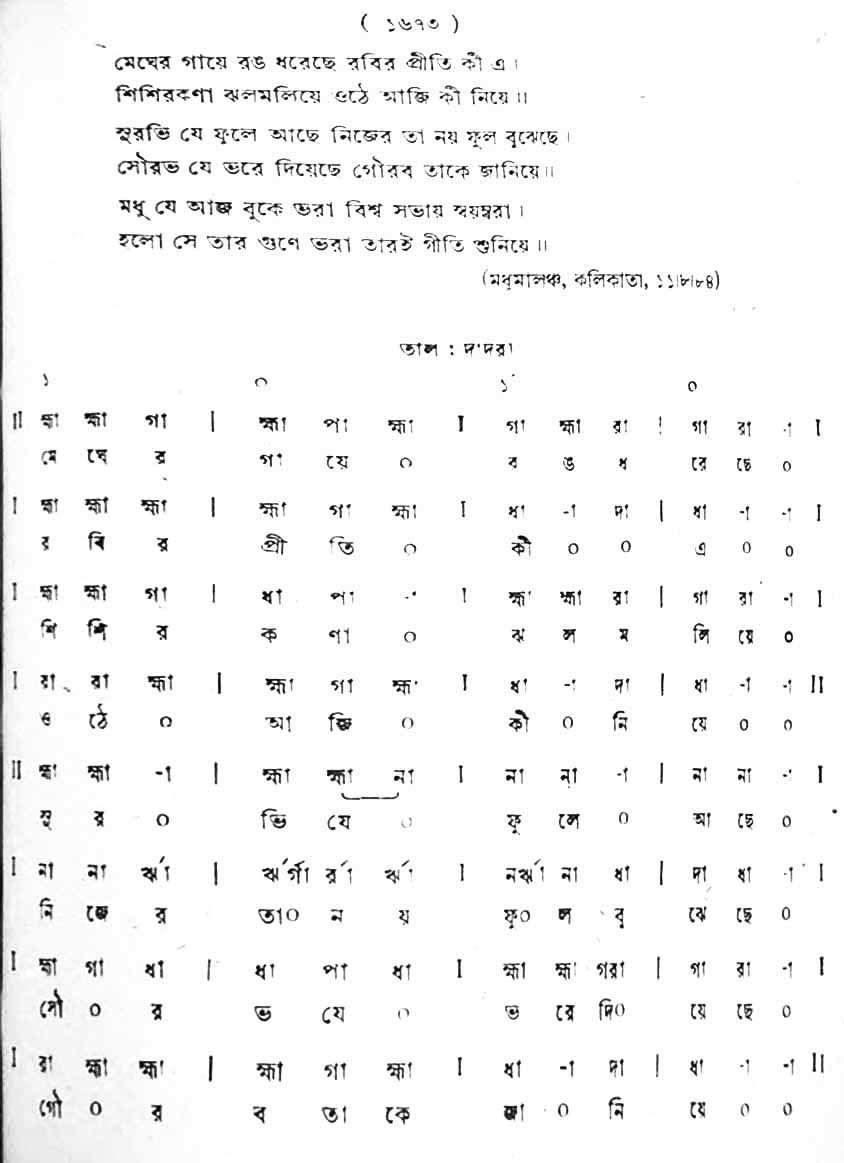 ( ১৬৭৩ )
মেঘের গায়ে রঙ ধরেছে রবির প্রীতি কী এ।
শিশিরকণা ঝলমলিয়ে ওঠে আজি কী নিয়ে॥
সুরভি যে ফুলে আছে নিজের তা নয় ফুল বুঝেছে।
সৌরভ যে ভরে দিয়েছে গৌরব তাকে জানিয়ে॥
মধু যে আজ বুকে ভরা বিশ্ব সভায় স্বয়ম্বরা।
হলো সে তার গুণে ভরা তারই গীতি শুনিয়ে॥
(মধুমালঞ্চ, কলিকাতা, ১১।৮।৮৪)
তাল : দাদরা
১ ০ ১ ০
II হ্মা হ্মা গা | হ্মা পা হ্মা I গা হ্মা রা | গা রা -া I
মে ঘে র গা য়ে ০ র ঙ ধ রে ছে ০
I হ্মা হ্মা হ্মা | হ্মা গা হ্মা I ধা -া দা | ধা -া -া I
র বি র প্রী তি ০ কী ০ ০ এ ০ ০
I হ্মা হ্মা গা | ধা পা -া I হ্মা হ্মা রা | গা রা -া I
শি শি র ক ণা ০ ঝ ল ম লি য়ে ০
I রা রা হ্মা | হ্মা গা হ্মা I ধা -া দা | ধা -া -া II
ও ঠে ০ আ জি ০ কী ০ নি য়ে ০ ০
II হ্মা হ্মা -া | হ্মা হ্মা না I না না -া | না না -া I
সু র ০ ভি যে ০ ফু লে ০ আ ছে ০
I না না র্ঋা | র্ঋর্গা র্রা র্ঋা I নর্ঋা না ধা | দা ধা -া I
নি জে র তা০ ন য় ফু০ ল বু ঝে ছে ০
I হ্মা গা ধা | ধা পা ধা I হ্মা হ্মা গরা | গা রা -া I
সৌ ০ র ভ যে ০ ভ রে দি০ য়ে ছে ০
I রা হ্মা হ্মা | হ্মা গা হ্মা I ধা -া দা | ধা -া -া II
গৌ ০ র ব তা কে জা ০ নি য়ে ০ ০